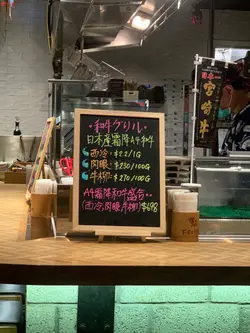 ·和牛グリル·
日本産霜降A4和牛
西冷: $212/1G
肉眼: $230/100G
牛柳: $270/100G
A4霜降和牛盛合..
(西冷,肉眼,牛柳) $698
宮崎牛